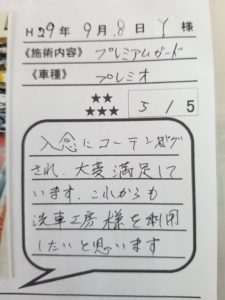 H29年9月8日 Y様
《施術内容》プレミアムガード
《車種》プレミオ
★★
★★★
5/5
入念にコーティングが
され、大変満足して
います。これからも
洗車工房様を利用
したいと思います